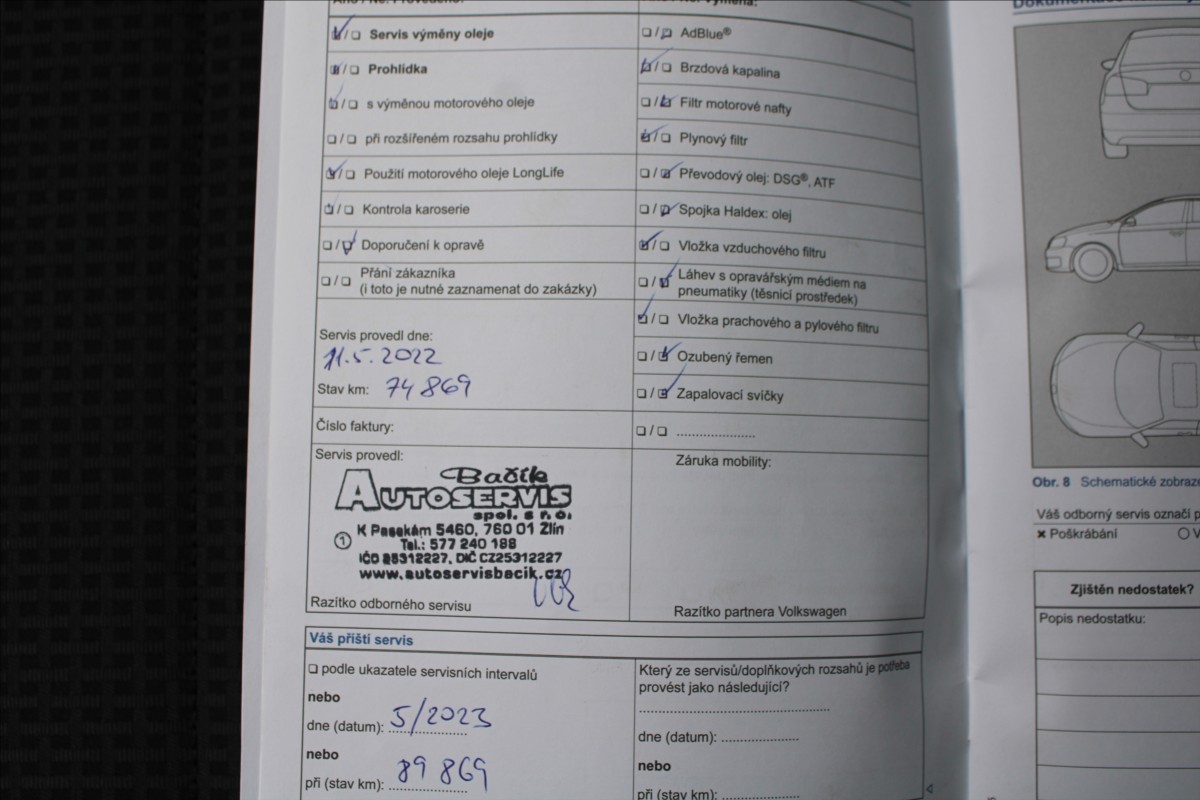 Servis výměny oleje
Prohlídka
s výměnou motorového oleje
při rozšířeném rozsahu prohlídky
Použití motorového oleje LongLife
Kontrola karoserie
Doporučení k opravě
Přání zákazníka
(i toto je nutné zaznamenat do zakázky)
Servis provedl dne:
11.5.2022
Stav km: 74 869
Číslo faktury:
Servis provedl:
Bačík
AUTOSERVIS
spol. s r.o.
K Pasekám 5460, 760 01 Zlín
1
Tel.: 577 240 188
IČO 25312227, DIČ CZ25312227
www.autoservisbacik.cz
Razítko odborného servisu
AdBlue®
Brzdová kapalina
Filtr motorové nafty
Plynový filtr
Převodový olej: DSG®, ATF
Spojka Haldex: olej
Vložka vzduchového filtru
Láhev s opravářským médiem na
pneumatiky (těsnicí prostředek)
Vložka prachového a pylového filtru
Ozubený řemen
Zapalovací svíčky
....................
Záruka mobility:
Razítko partnera Volkswagen
Váš příští servis
podle ukazatele servisních intervalů
nebo
dne (datum): 5/2023
nebo
při (stav km): 89 869
Který ze servisů/doplňkových rozsahů je potřeba
provést jako následující?
dne (datum): ....................
nebo
při (stav km): ....................
Obr. 8 Schematické
Váš odborný servis označí
× Poškrábání
Zjištěn nedostatek?
Popis nedostatku: